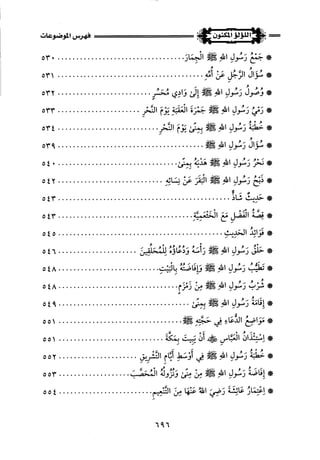 اللؤلؤ المكنون فهرس الموضوعات
* جَمْعُ رَسُولِ اللهِ ﷺ الْجِمَارَ ..... ٥٣٠
* سُؤَالُ الرَّجُلِ عَنْ أُمِّهِ ..... ٥٣١
* وُصُولُ رَسُولِ اللهِ ﷺ إِلَى وَادِي مُحَسِّرٍ ..... ٥٣٢
* رَمْيُ رَسُولِ اللهِ ﷺ جَمْرَةَ الْعَقَبَةِ يَوْمَ النَّحْرِ ..... ٥٣٣
* خُطْبَةُ رَسُولِ اللهِ ﷺ بِمِنًى يَوْمَ النَّحْرِ ..... ٥٣٤
* سُؤَالُ رَسُولِ اللهِ ﷺ ..... ٥٣٩
* نَحْرُ رَسُولِ اللهِ ﷺ هَدْيَهُ بِمِنًى ..... ٥٤٠
* ذَبْحُ رَسُولِ اللهِ ﷺ الْبَقَرَ عَنْ نِسَائِهِ ..... ٥٤٢
* حَدِيثٌ شَاذٌّ ..... ٥٤٣
* قِصَّةُ الْفَضْلِ مَعَ الْخَثْعَمِيَّةِ ..... ٥٤٣
* فَوَائِدُ الْحَدِيثِ ..... ٥٤٥
* حَلْقُ رَسُولِ اللهِ ﷺ رَأْسَهُ وَدُعَاؤُهُ لِلْمُحَلِّقِينَ ..... ٥٤٦
* تَطَيُّبُ رَسُولِ اللهِ ﷺ وَإِفَاضَتُهُ بِالْبَيْتِ ..... ٥٤٨
* شُرْبُ رَسُولِ اللهِ ﷺ مِنْ زَمْزَمَ ..... ٥٤٨
* إِقَامَةُ رَسُولِ اللهِ ﷺ بِمِنًى ..... ٥٤٩
* مَوَاضِعُ الدُّعَاءِ فِي حَجَّتِهِ ﷺ ..... ٥٥١
* اِسْتِئْذَانُ الْعَبَّاسِ ﵁ أَنْ يَبِيتَ بِمَكَّةَ ..... ٥٥١
* خُطْبَةُ رَسُولِ اللهِ ﷺ فِي أَوْسَطِ أَيَّامِ التَّشْرِيقِ ..... ٥٥٢
* إِفَاضَةُ رَسُولِ اللهِ ﷺ مِنْ مِنًى وَنُزُولُهُ الْمُحَصَّبَ ..... ٥٥٣
* اِعْتِمَارُ عَائِشَةَ رَضِيَ اللهُ عَنْهَا مِنَ التَّنْعِيمِ ..... ٥٥٤
٦٩٦